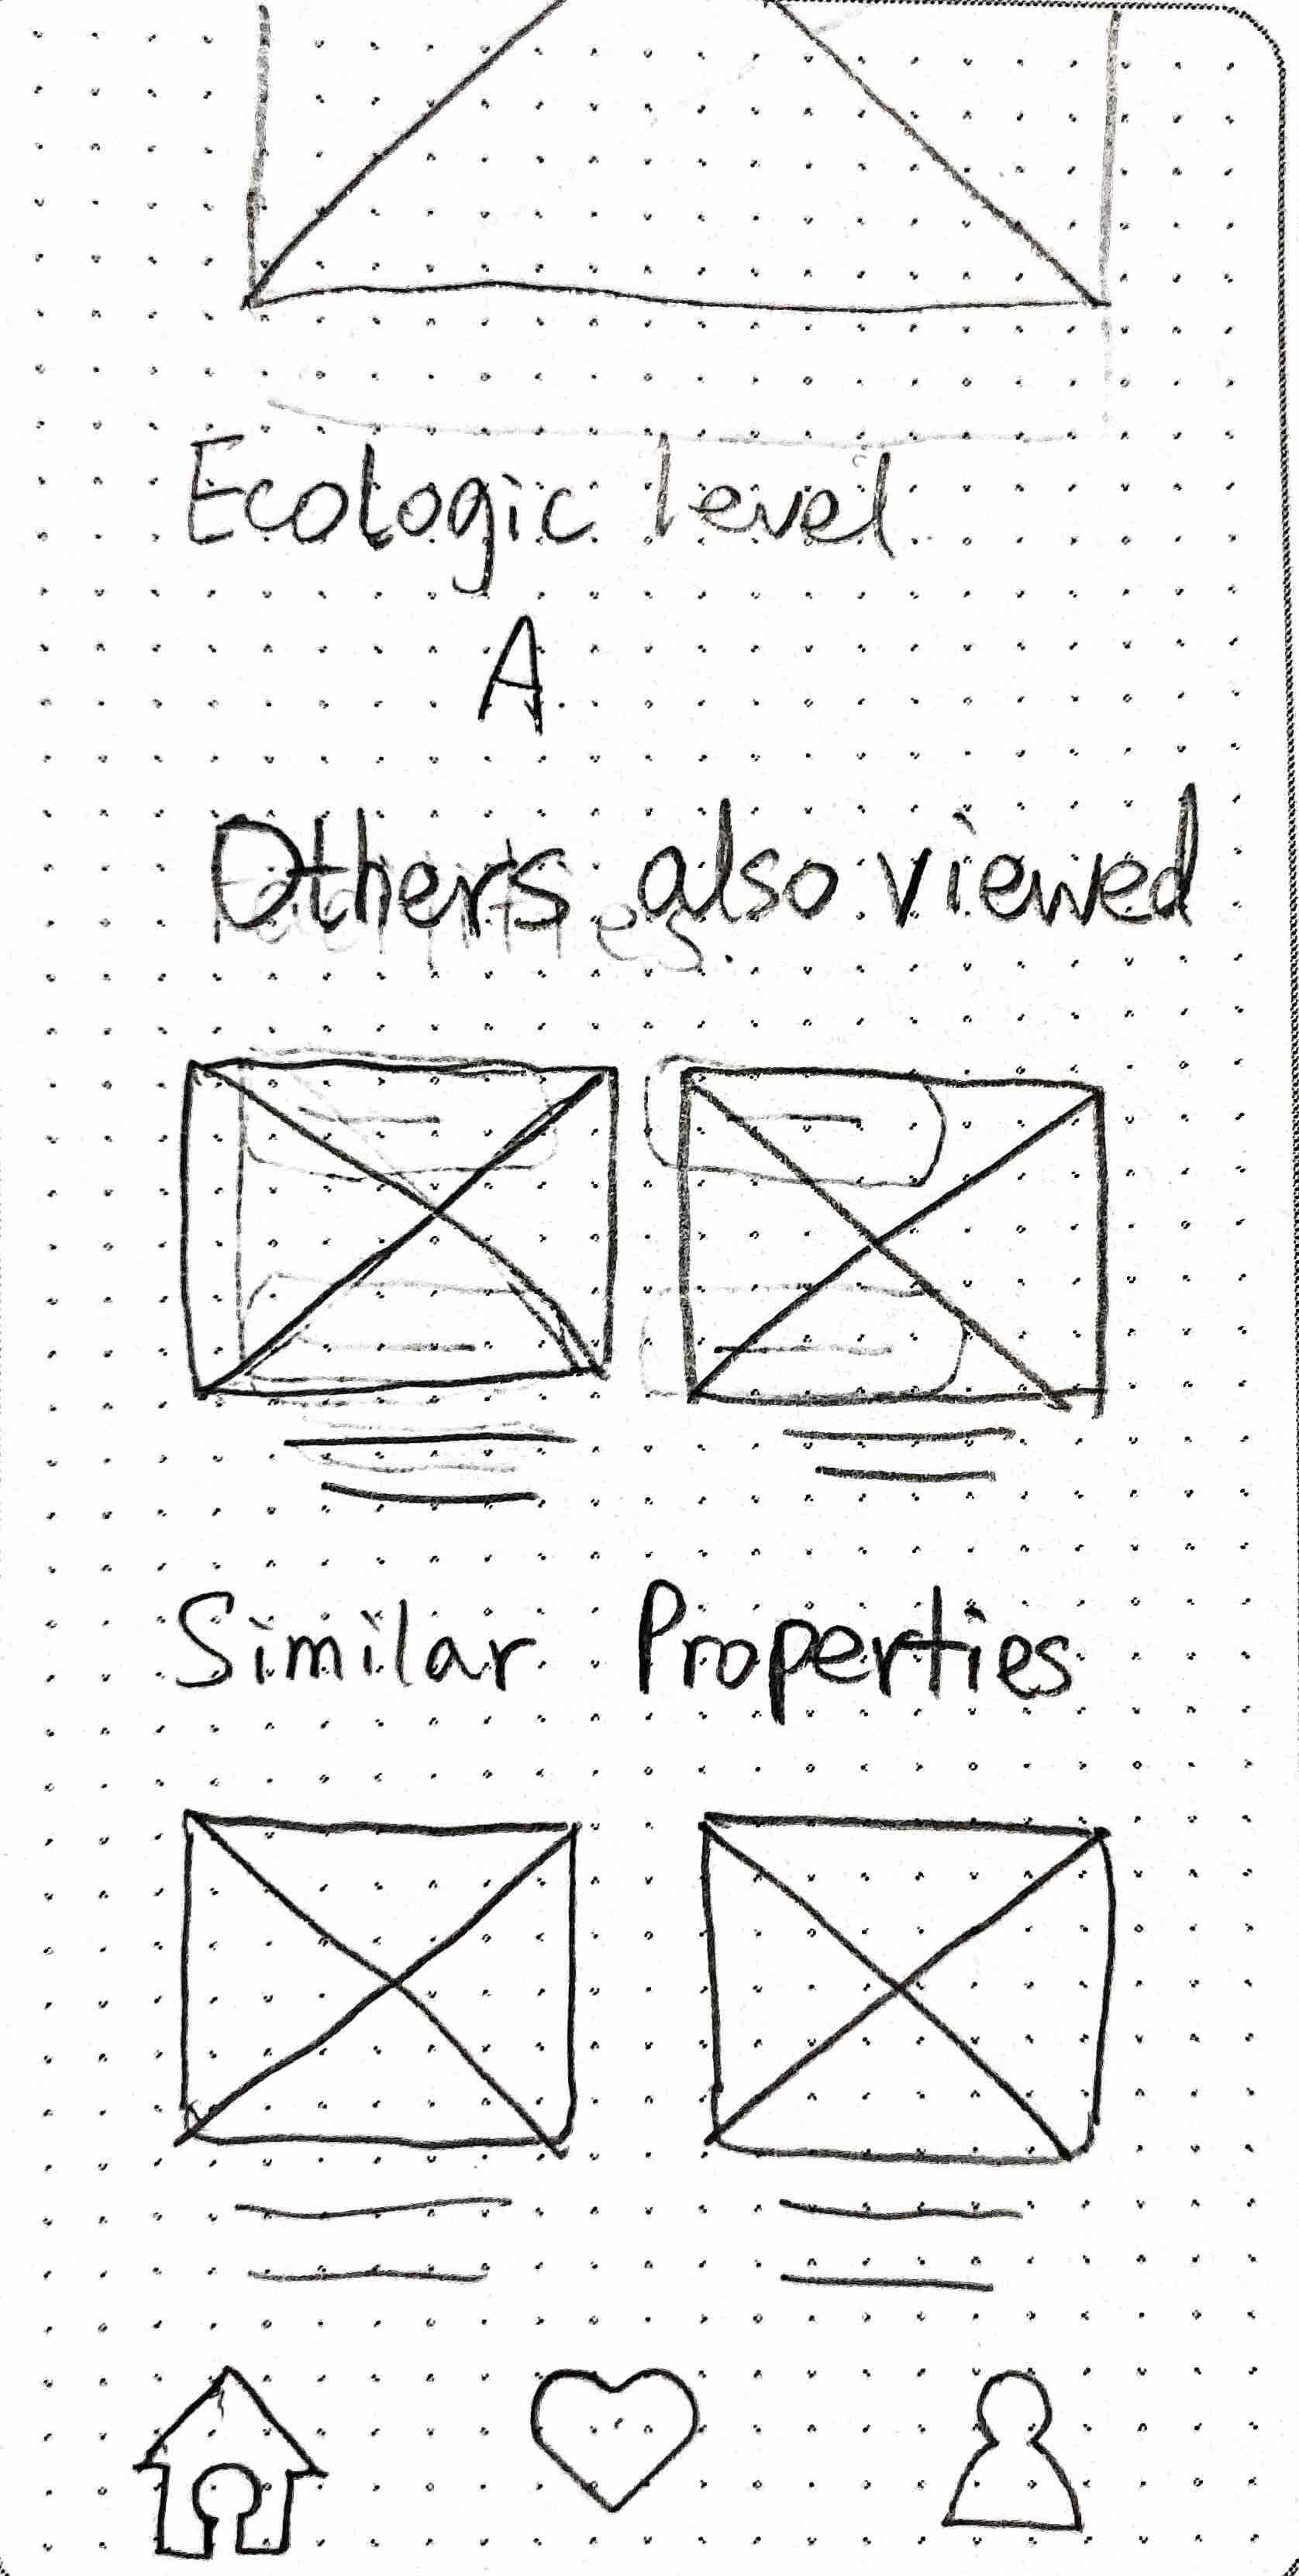 Ecologic level
A
Others also viewed
Similar Properties